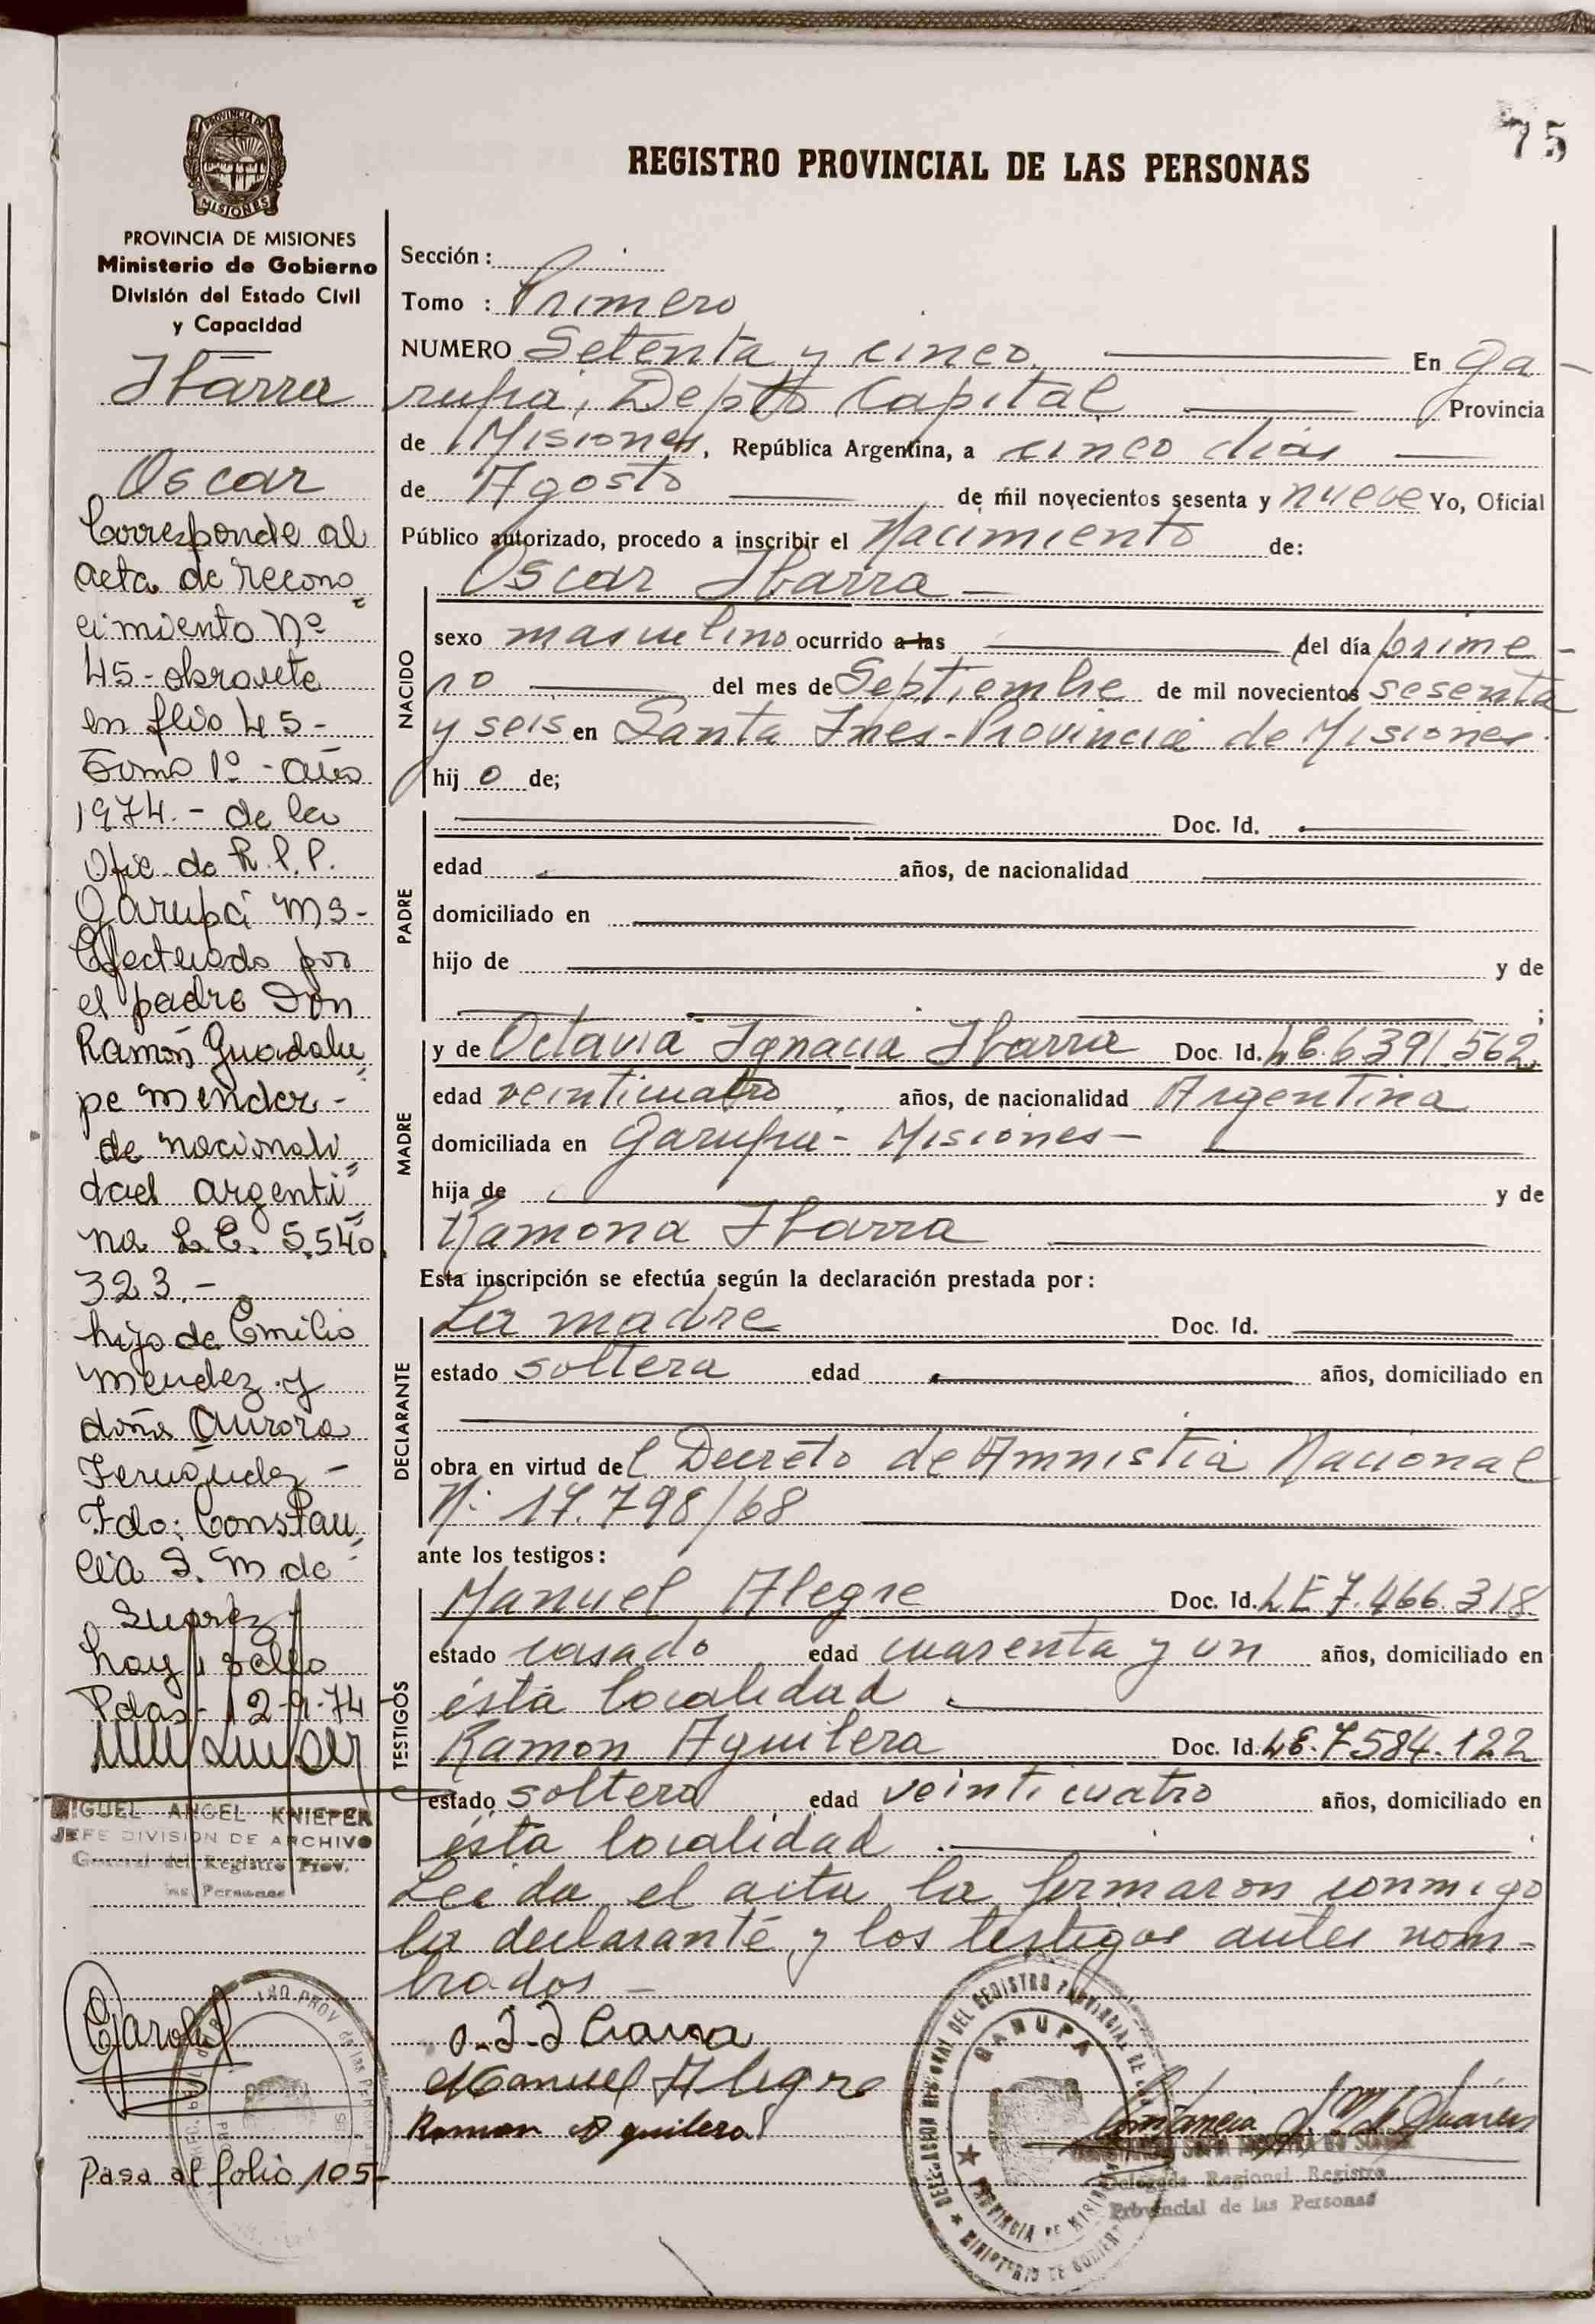 75
REGISTRO PROVINCIAL DE LAS PERSONAS
PROVINCIA DE
MISIONES
PROVINCIA DE MISIONES
Ministerio de Gobierno
División del Estado Civil
y Capacidad
Ibarra
Oscar
Corresponde al
acta de recono
cimiento Nº
45 - obrante
en flio 45 -
Tomo 1º - año
1974. - de la
Ofic. de R.P.P.
Garupá Ms -
Efectuado por
el padre Don
Ramón Guadalu
pe Mendez -
de nacionali
dad argenti
na L.E. 5.540
323. -
hijo de Emilio
Mendez y
doña Aurora
Fernández -
Fdo: Constan
cia S. M de
Suarez
hay sello
Pdas - 12-9-74
MIGUEL ANGEL KNIEPER
JEFE DIVISION DE ARCHIVO
General del Registro Prov.
las Personas
Pasa al folio 105-
Sección :
Tomo : Primero
NUMERO Setenta y cinco. En Ga-
rupá, Depto Capital Provincia
de Misiones, República Argentina, a cinco dias
de Agosto de mil novecientos sesenta y nueve Yo, Oficial
Público autorizado, procedo a inscribir el Nacimiento de:
NACIDO
Oscar Ibarra -
sexo masculino ocurrido a las del día prime-
ro del mes de Septiembre de mil novecientos sesenta
y seis en Santa Ines - Provincia de Misiones.
hij o de;
PADRE
Doc. Id.
edad años, de nacionalidad
domiciliado en
hijo de y de
;
MADRE
y de Octavia Ignacia Ibarra Doc. Id. LE. 6391.562
edad veinticuatro años, de nacionalidad Argentina
domiciliada en Garupa - Misiones -
hija de y de
Ramona Ibarra
Esta inscripción se efectúa según la declaración prestada por:
DECLARANTE
La madre Doc. Id.
estado soltera edad años, domiciliado en
obra en virtud del Decreto de Amnistia Nacional
Nº 17.798/68
ante los testigos:
TESTIGOS
Manuel Alegre Doc. Id. LE 7.466.318
estado casado edad cuarenta y un años, domiciliado en
ésta localidad
Ramon Aguilera Doc. Id. LE. 7584.122
estado soltero edad veinticuatro años, domiciliado en
ésta localidad
Leida el acta la firmaron conmigo
la declarante y los testigos antes nom-
brados -
O. I. Ibarra
Manuel Alegre
Ramon Aguilera
Constancia S. M. de Suarez
Delegada Regional Registro
Provincial de las Personas
DELEGACION REGIONAL DEL REGISTRO PROVINCIAL DE LAS
GARUPA
PROVINCIA DE MISIONES
MINISTERIO DE GOBIERNO